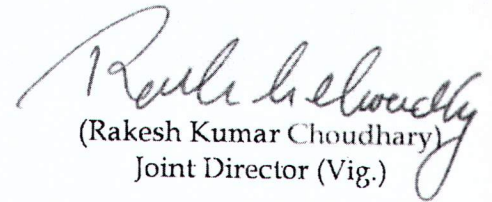 (Rakesh Kumar Choudhary)
Joint Director (Vig.)